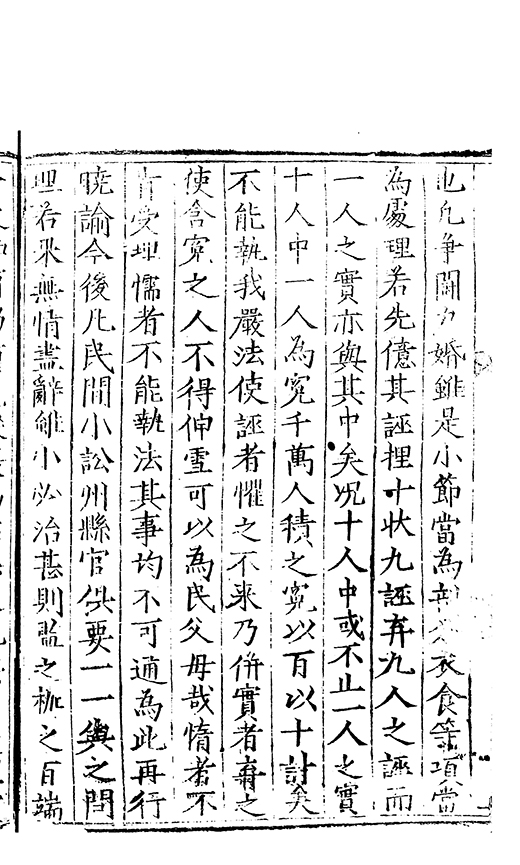 也凡爭鬪力婚雖是小節當為剖衣食等項當
為處理若先億其誣捏十状九誣弃九人之誣而
一人之實亦與其中矣况十人中或不止一人之實
十人中一人為冤千萬人積之冤以百以十計矣
不能執我嚴法使誣者懼之不来乃併實者棄之
使含冤之人不得伸雪可以為民父母哉惰者不
肯受理懦者不能執法其事均不可通為此再行
曉諭今後凡民間小訟州縣官俱要一一與之問
理若果無情盡辭雖小必治甚則監之枷之百端